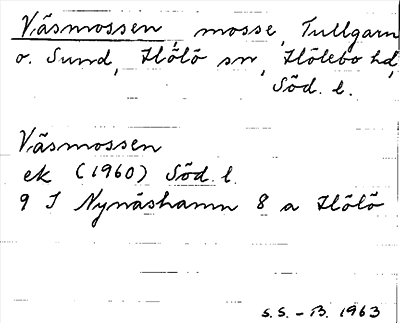 Väsmossen, mosse, Tullgarn
o. Sund, Hölö sn, Hölebo hd,
Söd. l.
Väsmossen
ek (1960) Söd. l.
9 I Nynäshamn 8 a Hölö
S.S. - B. 1963